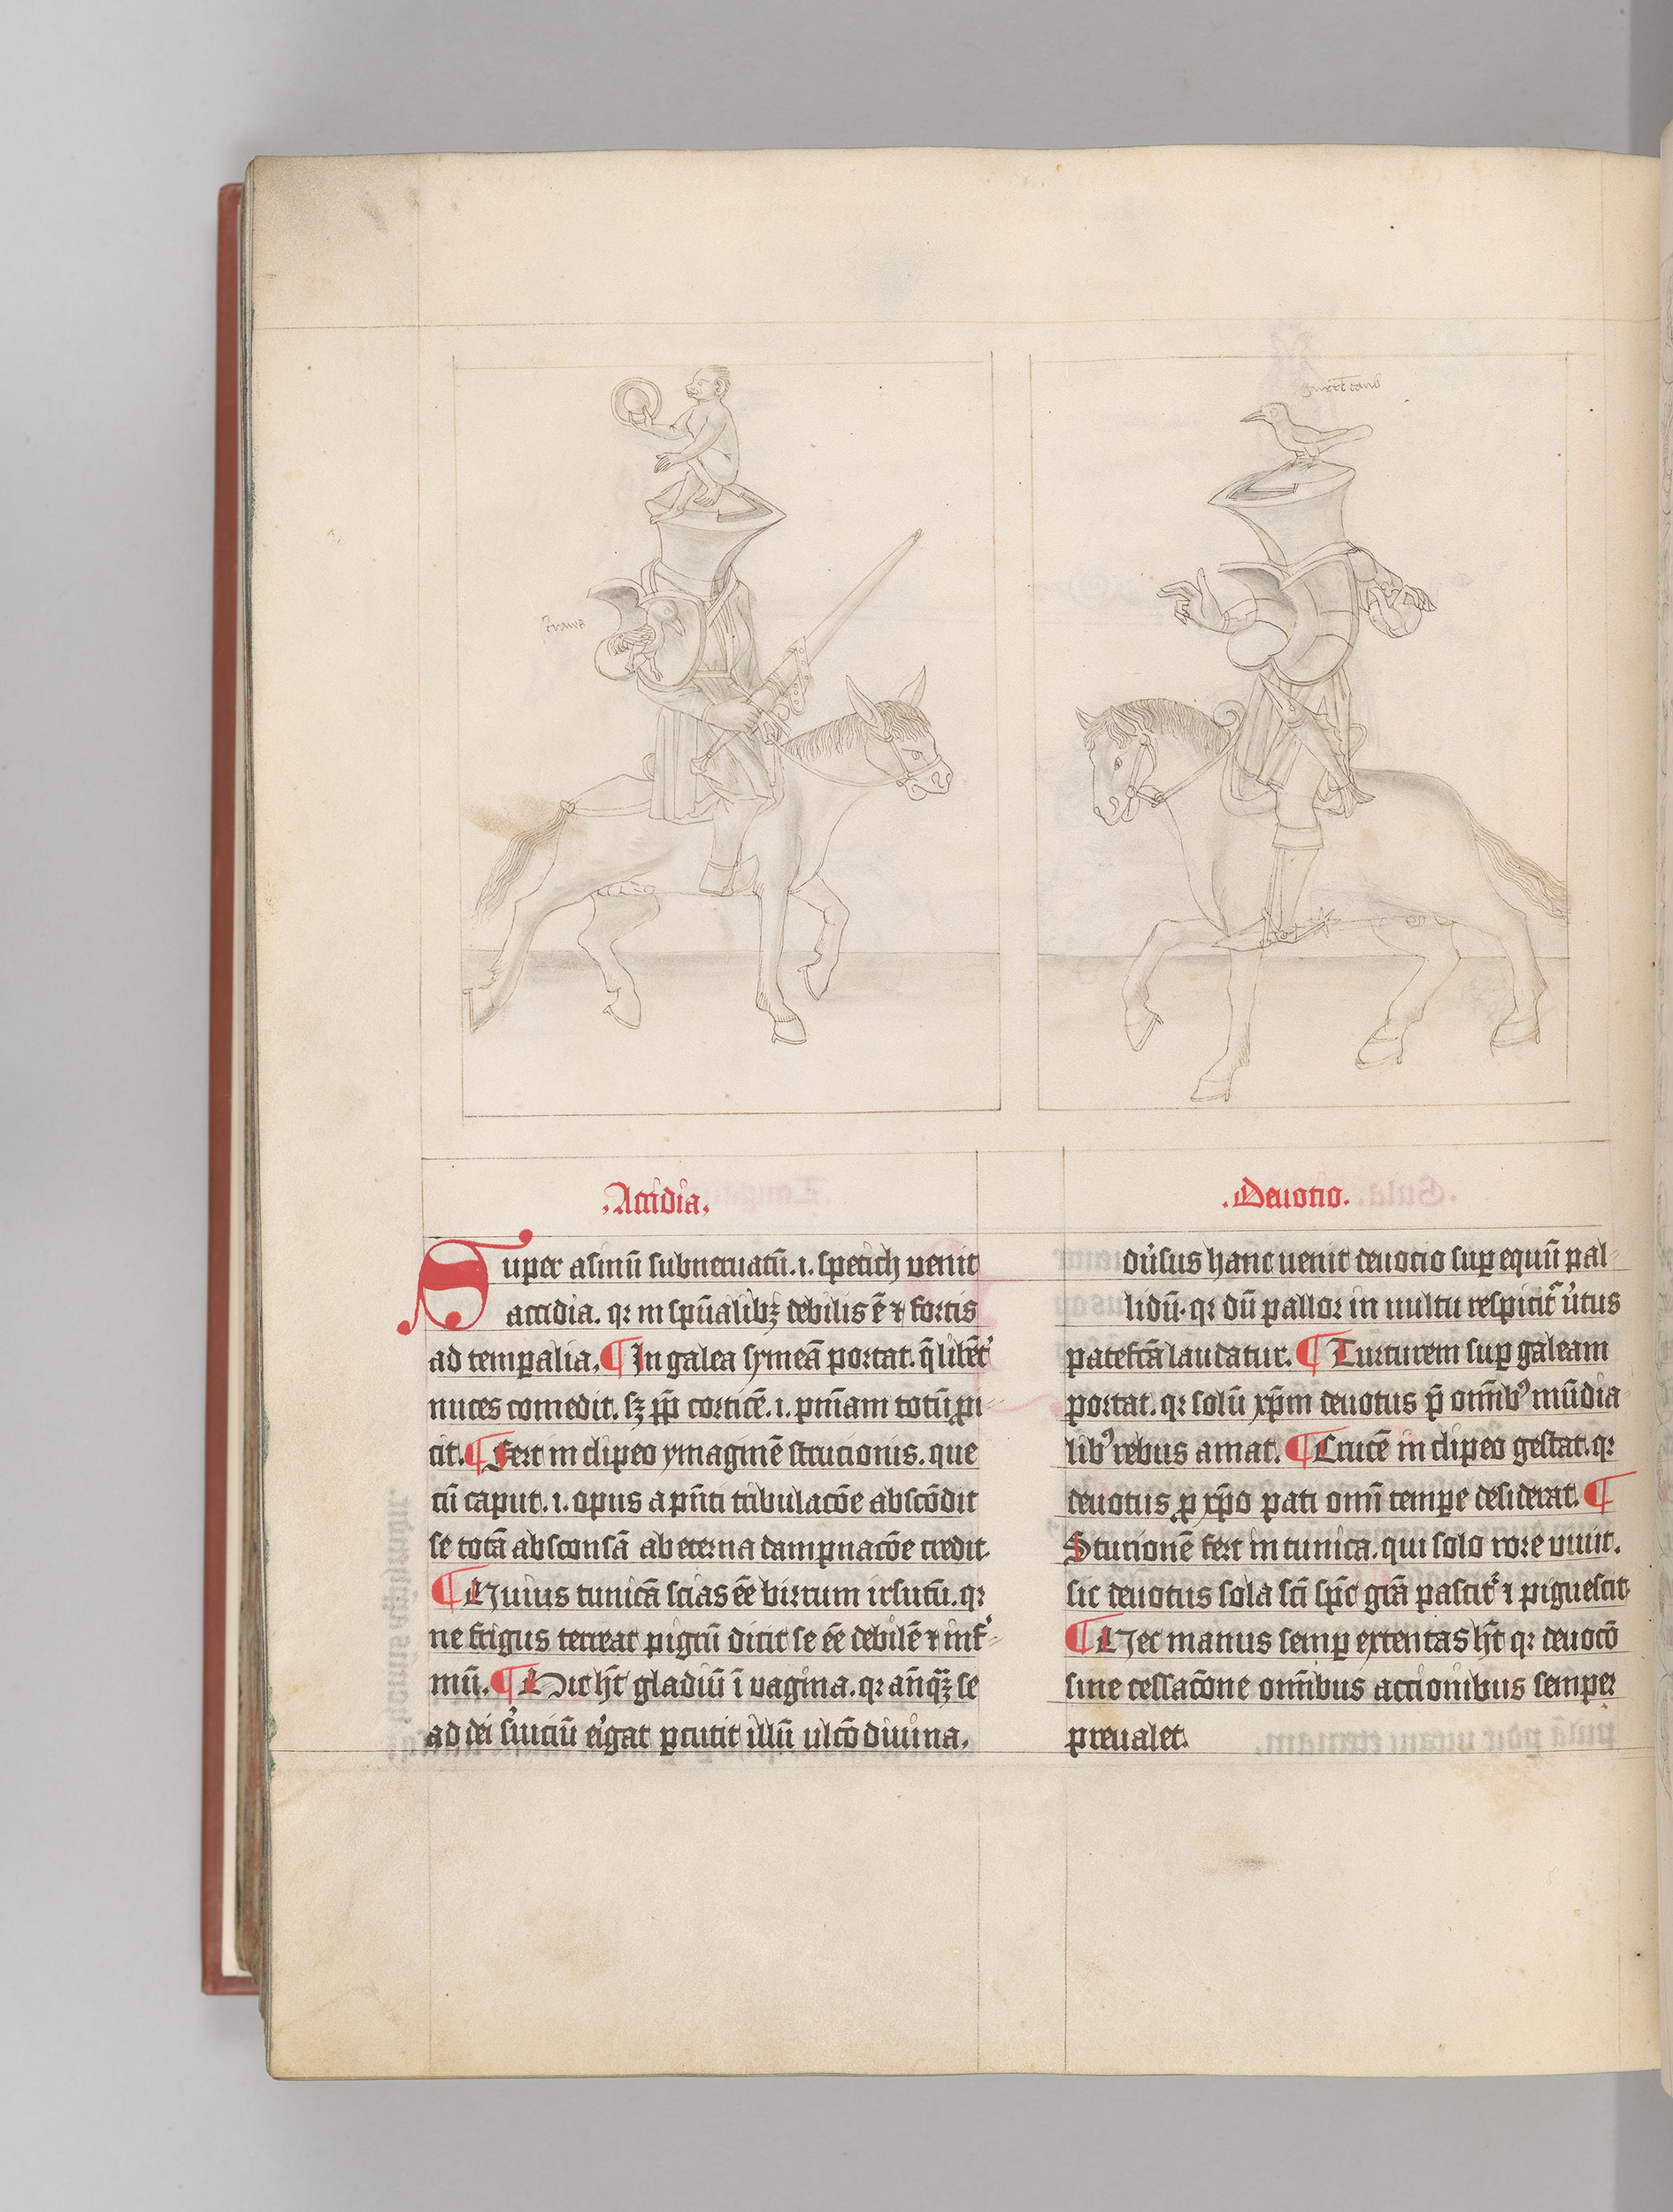 .Accidia.
Super asinū subneruatū .i. spetich venit
accidia. qr in spūalibꝫ debilis ē ⁊ fortis
ad temꝑalia. ¶ In galea symeā portat. q̄ libēt᾽
nuces comedit. sꝫ ꝓp̄ corticē .i. pnīam totū ꝓi
cit. ¶ Fert in clipeo ymaginē strucionis. que
cū caput .i. opus a pn̄ti tribulacōe abscōdit
se totā absconsā ab eterna dampnacōe credit.
¶ Huius tunicā scias eē birrum irsutū. qr
ne frigus terreat pigrū dicit se eē debilē ⁊ inf᾽
mū. ¶ Hic hꝫt gladiū ī vagina. qr an̄qꝫ se
ad dei s᾽uiciū eꝛ᾽gat ꝑcutit illū ulcō diuina.
.Deuotio.
du᾽sus hanc uenit deuotio suꝑ equū pal
lidū. qr dū pallor in uultu respicit᾽ u᾽tus
patefc̄a laudatur. ¶ Turturem suꝑ galeam
portat. qr solū xp̄m deuotus p̄ omīb᾽ mūdia
lib᾽ rebus amat. ¶ Crucē in clipeo gestat. qr
deuotus ꝓ xp̄o pati omī temꝑe desiderat. ¶
Sturionē fert in tunica. qui solo rore viuit.
sic deuotus sola sc̄i sp̄c grā pascit᾽ ⁊ piguescit
¶ Hec manus semꝑ extentas hꝫt qr deuocō
sine cessacōne omībus accionibus semper
preualet.